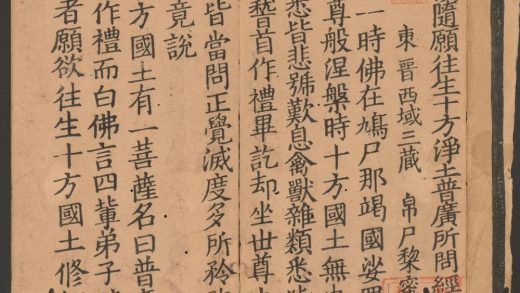 隨願往生十方淨土普廣所問經
東晉西域三藏 帛尸黎蜜
一時佛在鳩尸那竭國娑羅
尊般涅槃時十方國土無央
悉皆悲號歎息禽獸雜類悉皆
䭬首作禮畢訖却坐世尊
皆當問正覺滅度多所衿
竟說
方國土有一菩薩名曰普
作禮而白佛言四輩弟子
者願欲往生十方國土修